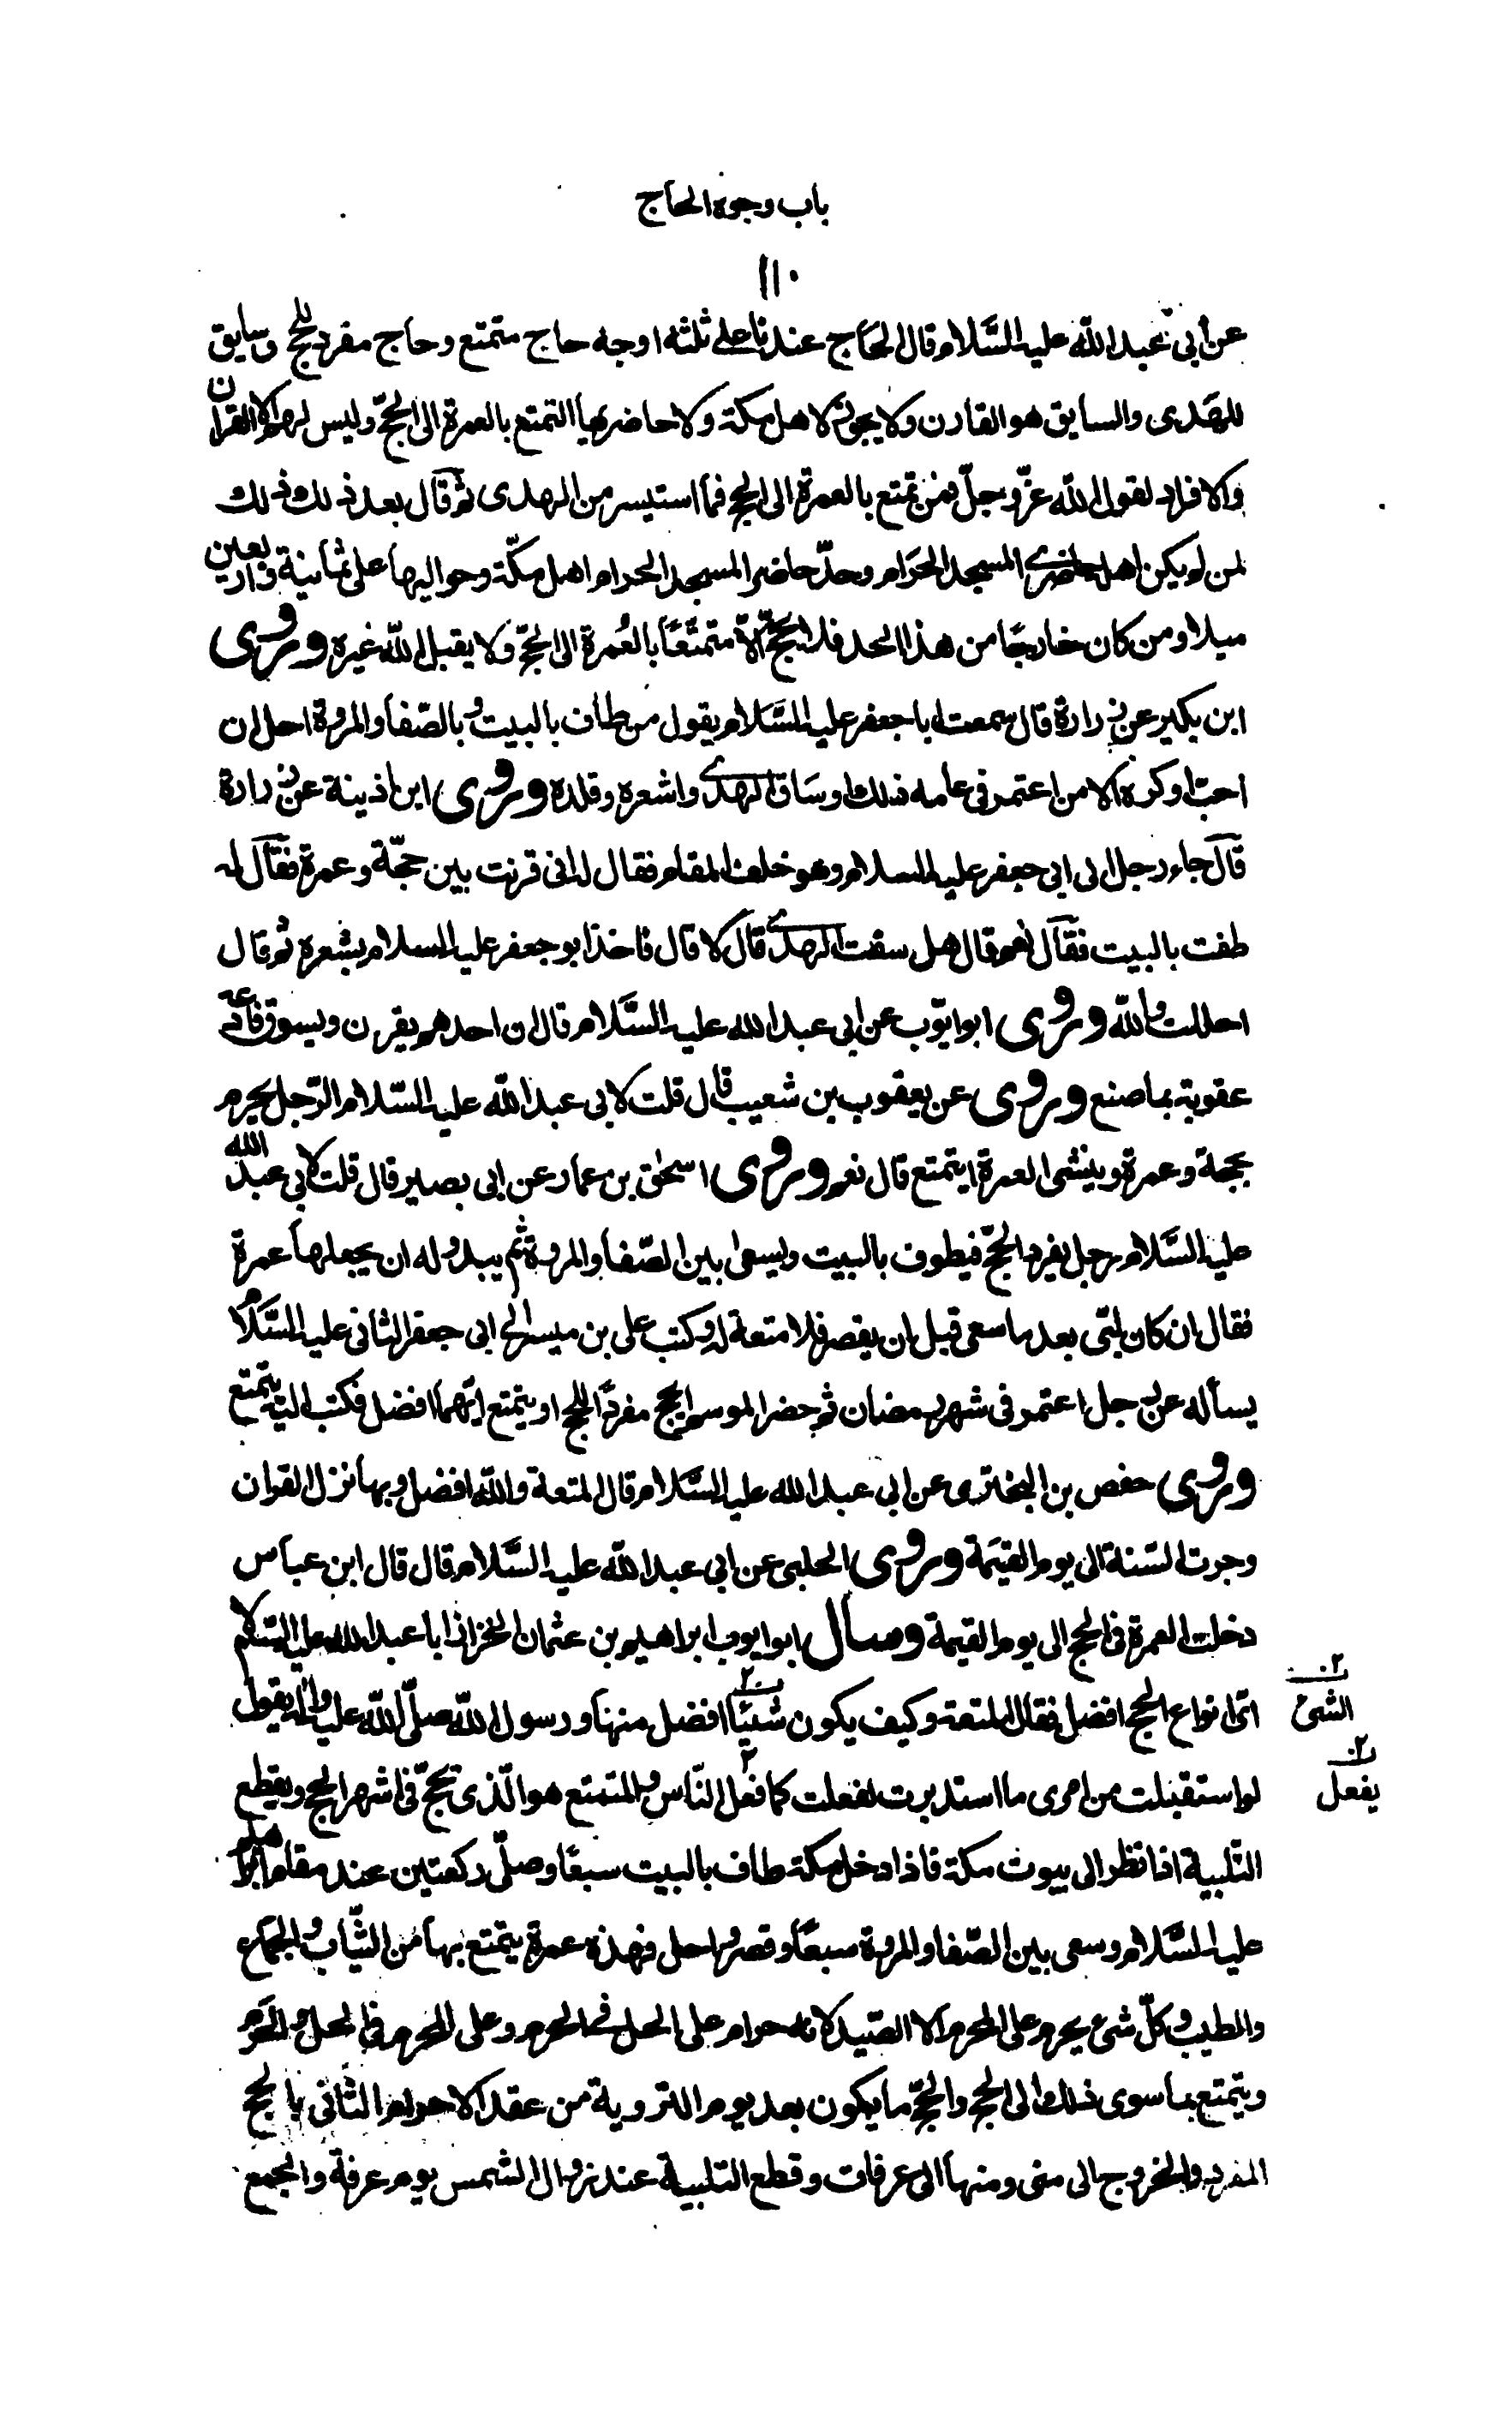 باب وجوه الحاج
١١٠
عن أبي عبد الله عليه السَّلام قال الحَاج عندنا على ثلثه اوجه حاج متمتع وحاج مفرد للحج وسايق
للهَدى والسايق هو القارن ولا يجوز لاهل مكة ولا حاضريها التمتع بالعمرة الى الحجّ وليس لهم الا القران
والافراد لقول الله عزّ وجلّ فمن تمتع بالعمرة الى الحج فما استيسر من الهدى ثم قال بعد ذلك ذلك
لمن لم يكن اهله حاضرى المسجد الحَرام وحدّ حاضرا المسجد الحرام اهل مكّة وحواليها على ثمانية واربعين
ميلا ومن كان خارجًا من هذا الحد فلا يحجّ الّا متمتّعًا بالعُمرة الى الحجّ ولا يقبل الله غيره وروى
ابن بكير عن زرارة قال سمعت ابا جعفر عليه السَّلام يقول من طاف بالبيت وبالصّفا والمروة احل ان
احب او كره الا من اعتمر فى عامه ذلك او سَاق الهدى واشعره وقلده وروى ابن اذينة عن زرارة
قال جاء رجل الى ابى جعفر عليه السلام وهو خلف المقام فقال له انى قرنت بين حجّة وعمرة فقال له
طفت بالبيت فقال نعم قال هل سقت الهدى قال لا قال فاخذ ابو جعفر عليه السلام بشعره ثم قال
احللت والله وروى ابو ايّوب عن ابى عبد الله عليه السَّلام قال ان احدهم يقرن ويسوق فادعه
عقوبة بما صنع وروى عن يعقوب بن شعيب قال قلت لابى عبد الله عليه السّلام الرّجل يحرم
بحجة وعمرة وينشى العمرة ايتمتع قال نعم وروى اسحٰق بن عمار عن ابى بصير قال قلت لابى عبد الله
عليه السَّلام رجل يفرد الحجّ فيطوف بالبيت ويسعى بين الصّفا والمروة ثم يبدو له ان يجعلها عمرة
فقال ان كان لبّى بعد ما سعى قبل ان يقصر فلا متعة له وكتب على بن ميسر الى ابى جعفر الثانى عليه السَّلام
يسأله عن رجل اعتمر فى شهر رمضان ثم حضر الموسم ايحج مفردًا للحج او يتمتع ايّهما افضل فكتب اليه يتمتع
وروى حفص بن البخترى عن ابى عبد الله عليه السَّلام قال المتعة والله افضل وبها نزل القران
وجرت السّنة الى يوم القيٰمة وروى الحلبى عن ابى عبد الله عليه السَّلام قال قال ابن عباس
دخلت العمرة فى الحج الى يوم القيمة وسأل ابو ايوب ابراهيم بن عثمان الخزاز ابا عبد الله عليه السّلام
اىّ انواع الحج افضل فقال المتعة وكيف يكون شيئًا افضل منها ورسول الله صلّى الله عليه واله يقول
الشئ
لو استقبلت من امرى ما استدبرت لفعلت كما فعل النّاس والمتمتع هو الّذى يحجّ فى اشهر الحج ويقطع
يفعل
التّلبية اذا نظر الى بيوت مكة فاذا دخل مكة طاف بالبيت سبعًا وصلّى ركعتين عند مقام ابرٰهيم
عليه السَّلام وسعى بين الصّفا والمروة سبعًا وقصر واحل فهذه عمرة يتمتع بها من الثّياب والجماع
والطيب وكلّ شئ يحرم على المحرم الا الصّيد لانه حرام على المحل فى الحرم وعلى المحرم فى الحل والحرم
ويتمتع بما سوى ذلك الى الحج والحجّ ما يكون بعد يوم التروية من عقد الاحرام الثّانى بالحج
المفرد والخروج الى منى ومنها الى عرفات وقطع التلبية عند زوال الشمس يوم عرفة والجمع